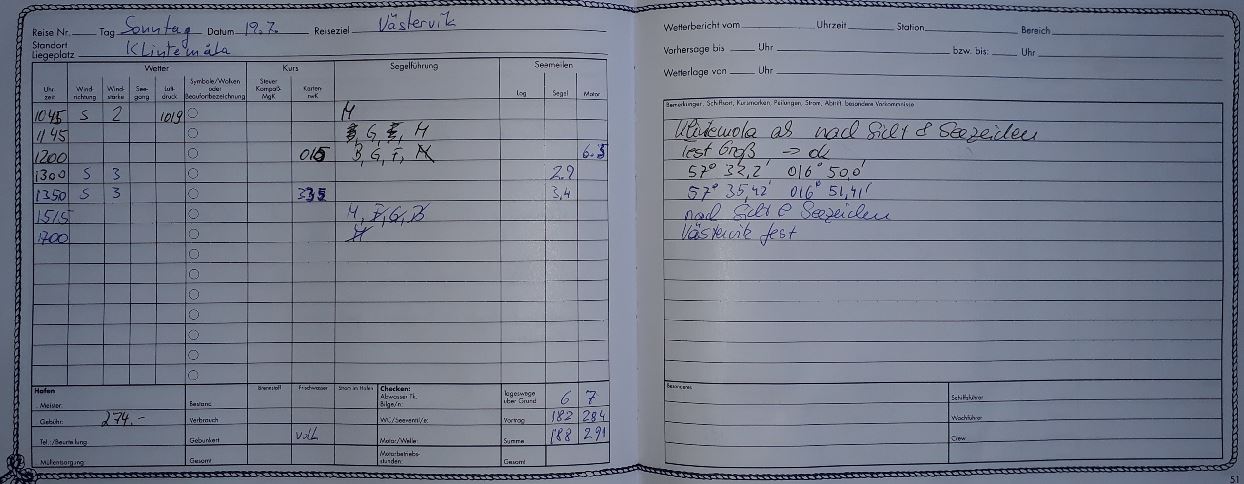 Reise Nr. Tag Sonntag Datum 19.7. Reiseziel Västervik
Standort Liegeplatz Klintemåla
Wetter Kurs Segelführung Seemeilen
Uhrzeit Windrichtung Windstärke Seegang Luftdruck Symbole/Wolken oder Beaufortbezeichnung Steuer Kompaß MgK Karten rwK Log Segel Motor
1045 S 2 1019 M
1145 G, M
1200 015 B, G, F, M 6.5
1300 S 3 2.9
1350 S 3 335 3,4
1515 M, F, G, B
1700 M
Hafen Brennstoff Frischwasser Strom im Hafen Checken: Tageswege über Grund 6 7
Meister: Bestand Abwasser Tk. Bilge/n:
Gebühr: 274.- Verbrauch WC/Seeventil/e: Vortrag 182 284
Tel.:/Beurteilung Gebunkert voll Motor/Welle: Summe 188 291
Müllentsorgung: Gesamt Motorbetriebsstunden: Gesamt
Wetterbericht vom Uhrzeit Station Bereich
Vorhersage bis Uhr bzw. bis: Uhr
Wetterlage von Uhr
Bemerkungen, Schiffsort, Kursmarken, Peilungen, Strom, Abtrift, besondere Vorkommnisse
Klintemola ab nach Sicht & Seezeichen
Test Groß → ok
57° 32,2' 016° 50,0'
57° 35,42' 016° 51,41'
nach Sicht & Seezeichen
Västervik fest
Besonderes Schiffsführer
Wachführer
Crew
51